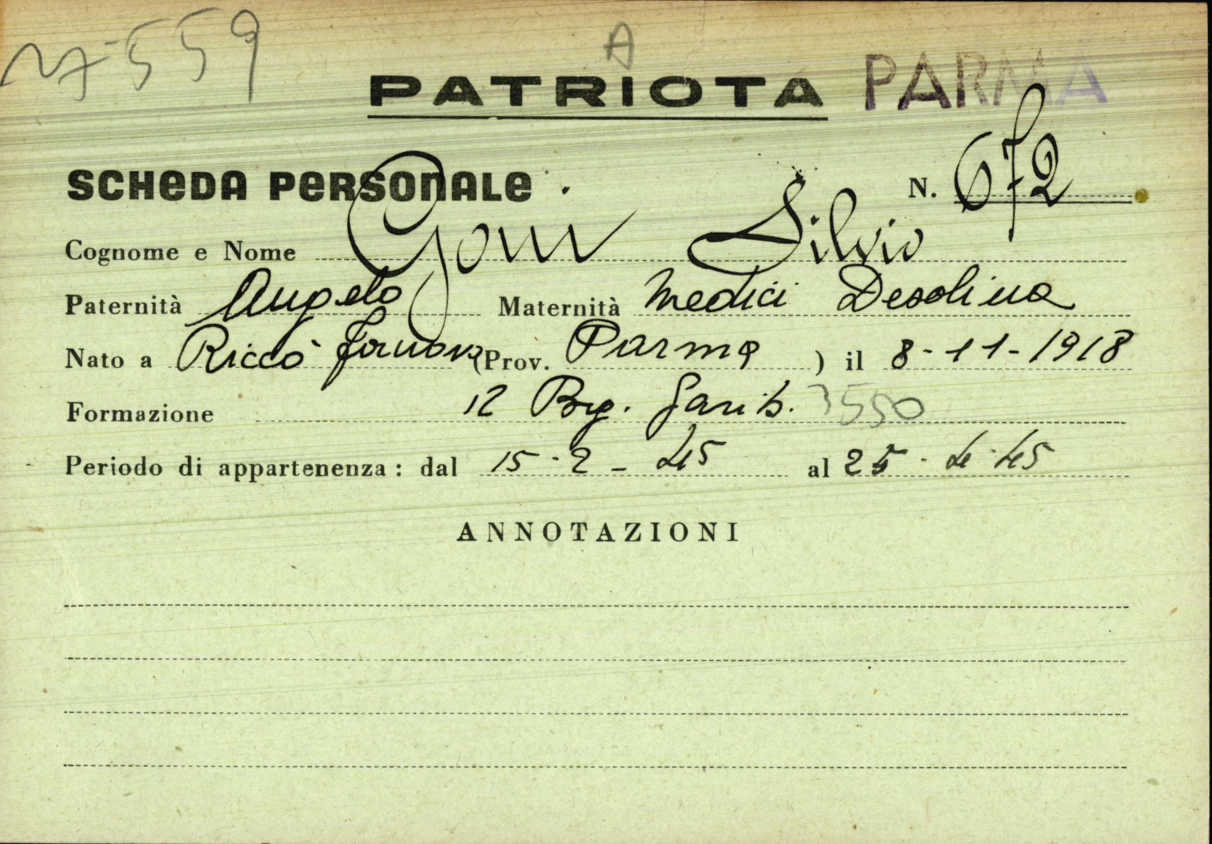 A
PATRIOTA PARMA
SCHEDA PERSONALE . N. 672
Cognome e Nome Goni Silvio
Paternità Angelo Maternità Medici Desolina
Nato a Riccò Fornovo (Prov. Parma ) il 8-11-1918
Formazione 12 Brg. Garib. 3550
Periodo di appartenenza: dal 15-2-45 al 25-4-45
ANNOTAZIONI